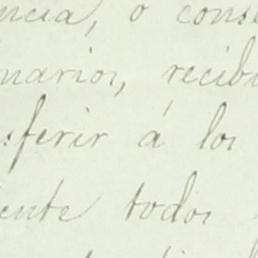 ncia, o conse
narios, recibi
sferir á los
iente todos